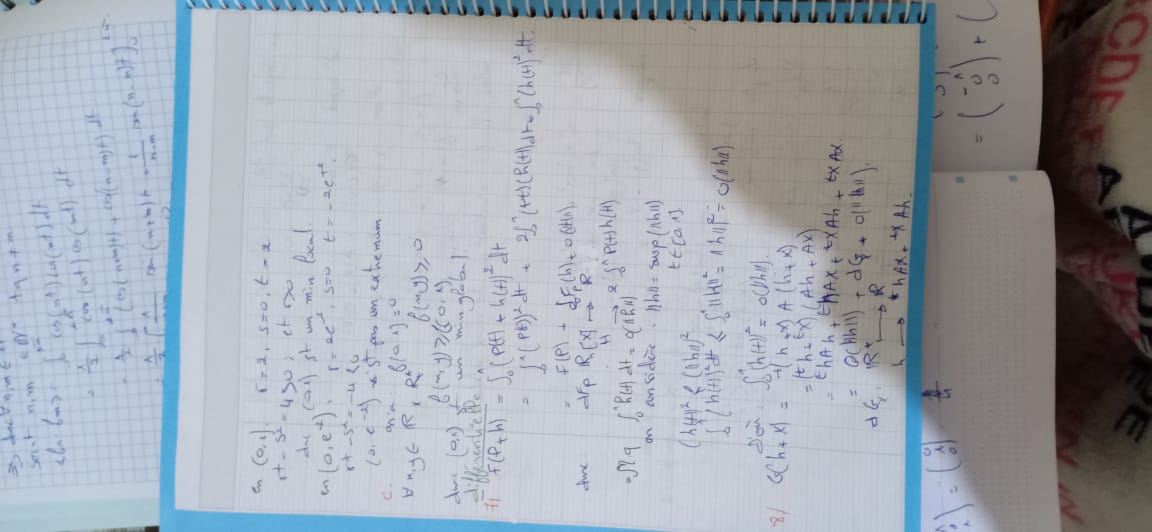 soient n, m ∈ ℕ* tq n ≠ m
cos(nt) cos(mt) dt
= 1/2 ∫ cos(nt) cos(mt) dt
= 1/2 ∫ cos(n+m)t + cos(n-m)t dt
sin (n+m)t + 1/(n-m) sin(n-m)t]
en (0,1). r=2, s=0, t=2
rt - s² = 4>0; et r>0
donc (0,1) est un min local.
en (0, e⁻²): r = 2e⁻², s=0 t = -2e⁺²
rt - s² = -4 <0
(0, e⁻²) n'est pas un extremum
c. on a: f(0,1)=0
∀ x,y ∈ ℝ x ℝ*₊ f(x,y) ≥ 0
f(x,y) ≥ f(0,1)
donc (0,1) est un min global
differentielle
7) F(P+h) = ∫₀¹ (P(t) + h(t))² dt
= ∫₀¹ (P(t))² dt + 2∫₀¹ (P(t)) (h(t)) dt + ∫₀¹ (h(t))² dt.
= F(P) + dF_P(h) + o(||h||).
donc dF_P ℝₙ[X] → ℝ
H → 2∫₀¹ P(t) h(t)
∫₀¹ h(t) dt = o(||h||)
on considère . ||h|| = sup (||h||)
t∈[0,1]
(h(t))² ≤ (||h||)²
∫₀¹ (h(t))² dt ≤ ∫₀¹ ||H||² = ||h||² = o(||h||)
D'où: ∫₀¹ (h(t))² = o(||h||).
8/ G(h+x) = ᵗ(h+x) A (h+x)
= (ᵗh + ᵗx) (Ah + AX)
= ᵗhAh + ᵗhAX + ᵗXAh + ᵗXAX.
= O(||h||) + dG + o(||h||).
dGₓ: ℝⁿ → ℝ
h → ᵗhAX + ᵗXAh.